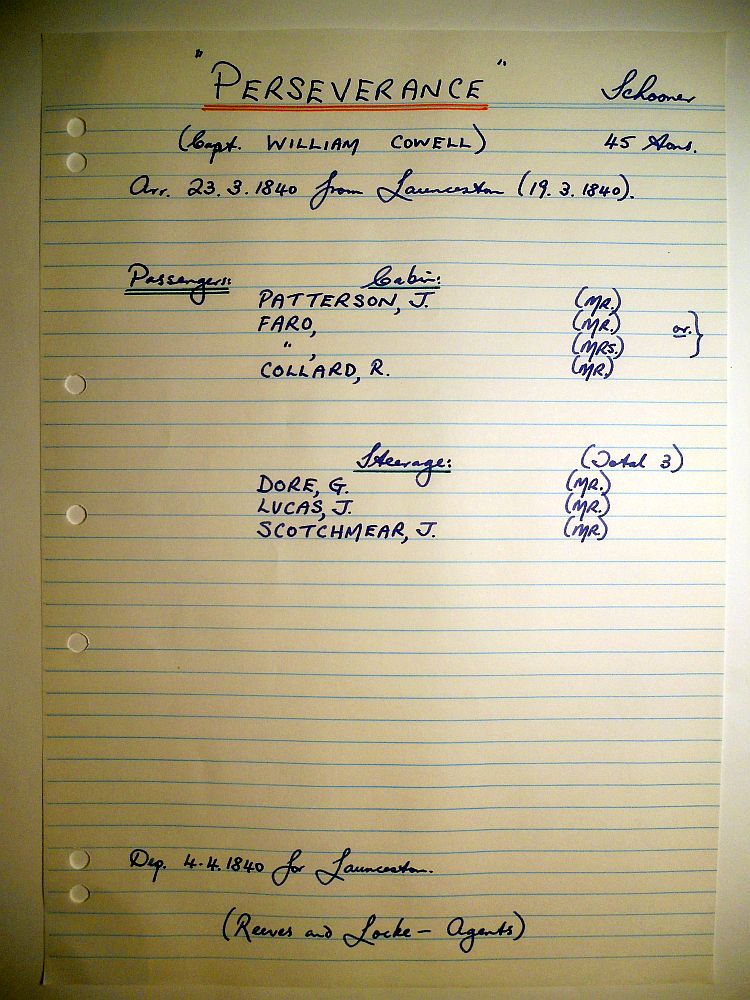 "PERSEVERANCE" Schooner
(Capt. WILLIAM COWELL) 45 tons.
Arr. 23.3.1840 from Launceston (19.3.1840).
Passengers: Cabin:
PATTERSON, J. (MR.)
FARO, (MR.) or. }
" , (MRS.)
COLLARD, R. (MR.)
Steerage: (Total 3)
DORE, G. (MR.)
LUCAS, J. (MR.)
SCOTCHMEAR, J. (MR)
Dep. 4.4.1840 for Launceston.
(Reeves and Locke - Agents)